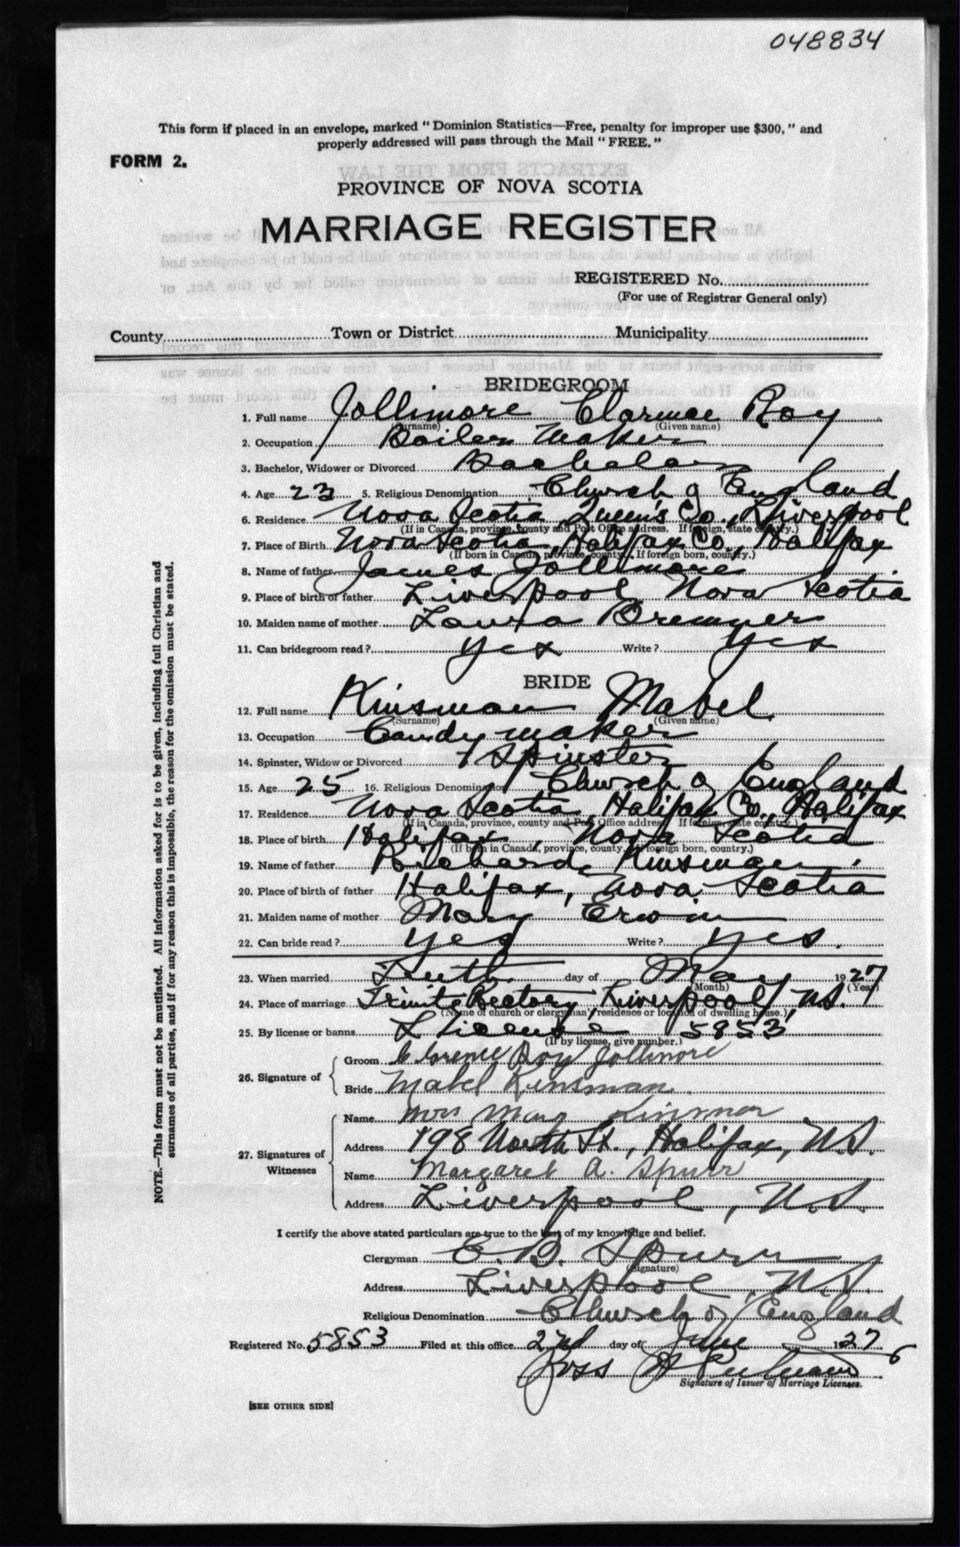 048834
This form if placed in an envelope, marked " Dominion Statistics—Free, penalty for improper use $300, " and
properly addressed will pass through the Mail "FREE."
FORM 2.
PROVINCE OF NOVA SCOTIA
MARRIAGE REGISTER
REGISTERED No.
(For use of Registrar General only)
County Town or District Municipality
BRIDEGROOM
1. Full name Jollimore Clarence Roy
(Surname) (Given name)
2. Occupation Boiler Maker
3. Bachelor, Widower or Divorced Bachelor
4. Age 23 5. Religious Denomination Church of England
6. Residence Nova Scotia Queen's Co., Liverpool
(If in Canada, province, county and Post Office address. If foreign, state country.)
7. Place of Birth Nova Scotia, Halifax Co., Halifax
(If born in Canada, province, county. If foreign born, country.)
8. Name of father James Jollimore
9. Place of birth of father Liverpool, Nova Scotia
10. Maiden name of mother Laura Bremner
11. Can bridegroom read? Yes Write? Yes
BRIDE
12. Full name Kinsman Mabel
(Surname) (Given name)
13. Occupation Candy maker
14. Spinster, Widow or Divorced Spinster
15. Age 25 16. Religious Denomination Church of England
17. Residence Nova Scotia, Halifax Co., Halifax
(If in Canada, province, county and Post Office address. If foreign, state country.)
18. Place of birth Halifax, Nova Scotia
(If born in Canada, province, county. If foreign born, country.)
19. Name of father Richard Kinsman
20. Place of birth of father Halifax, Nova Scotia
21. Maiden name of mother Mary Erwin
22. Can bride read? Yes Write? yes.
23. When married Tenth day of May 1927
(Month) (Year)
24. Place of marriage Trinity Rectory Liverpool, N.S.
(Name of church or clergyman's residence or location of dwelling house.)
25. By license or banns License 5853
(If by license, give number.)
26. Signature of Groom Clarence Roy Jollimore
Bride Mabel Kinsman
27. Signatures of Witnesses Name Mrs Mary Kinsman
Address 198 North St., Halifax, N.S.
Name Margaret A. Spurr
Address Liverpool, N.S.
I certify the above stated particulars are true to the best of my knowledge and belief.
Clergyman C. B. Spurr
(Signature)
Address Liverpool, N.S.
Religious Denomination Church of England
Registered No. 5853 Filed at this office 2nd day of June 1927
Signature of Issuer of Marriage Licenses.
[SEE OTHER SIDE]
NOTE.—This form must not be mutilated. All information asked for is to be given, including full Christian and
surnames of all parties, and if for any reason this is impossible, the reason for the omission must be stated.